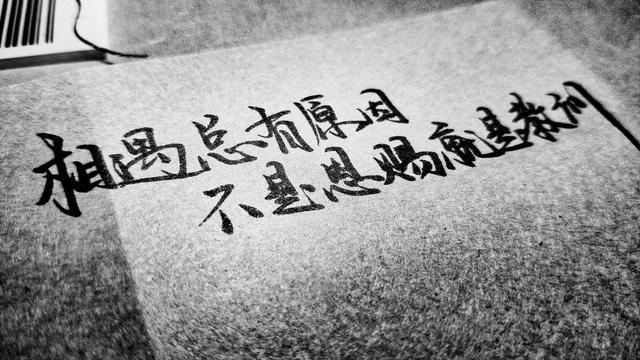 相遇总有原因
不是恩赐就是教训